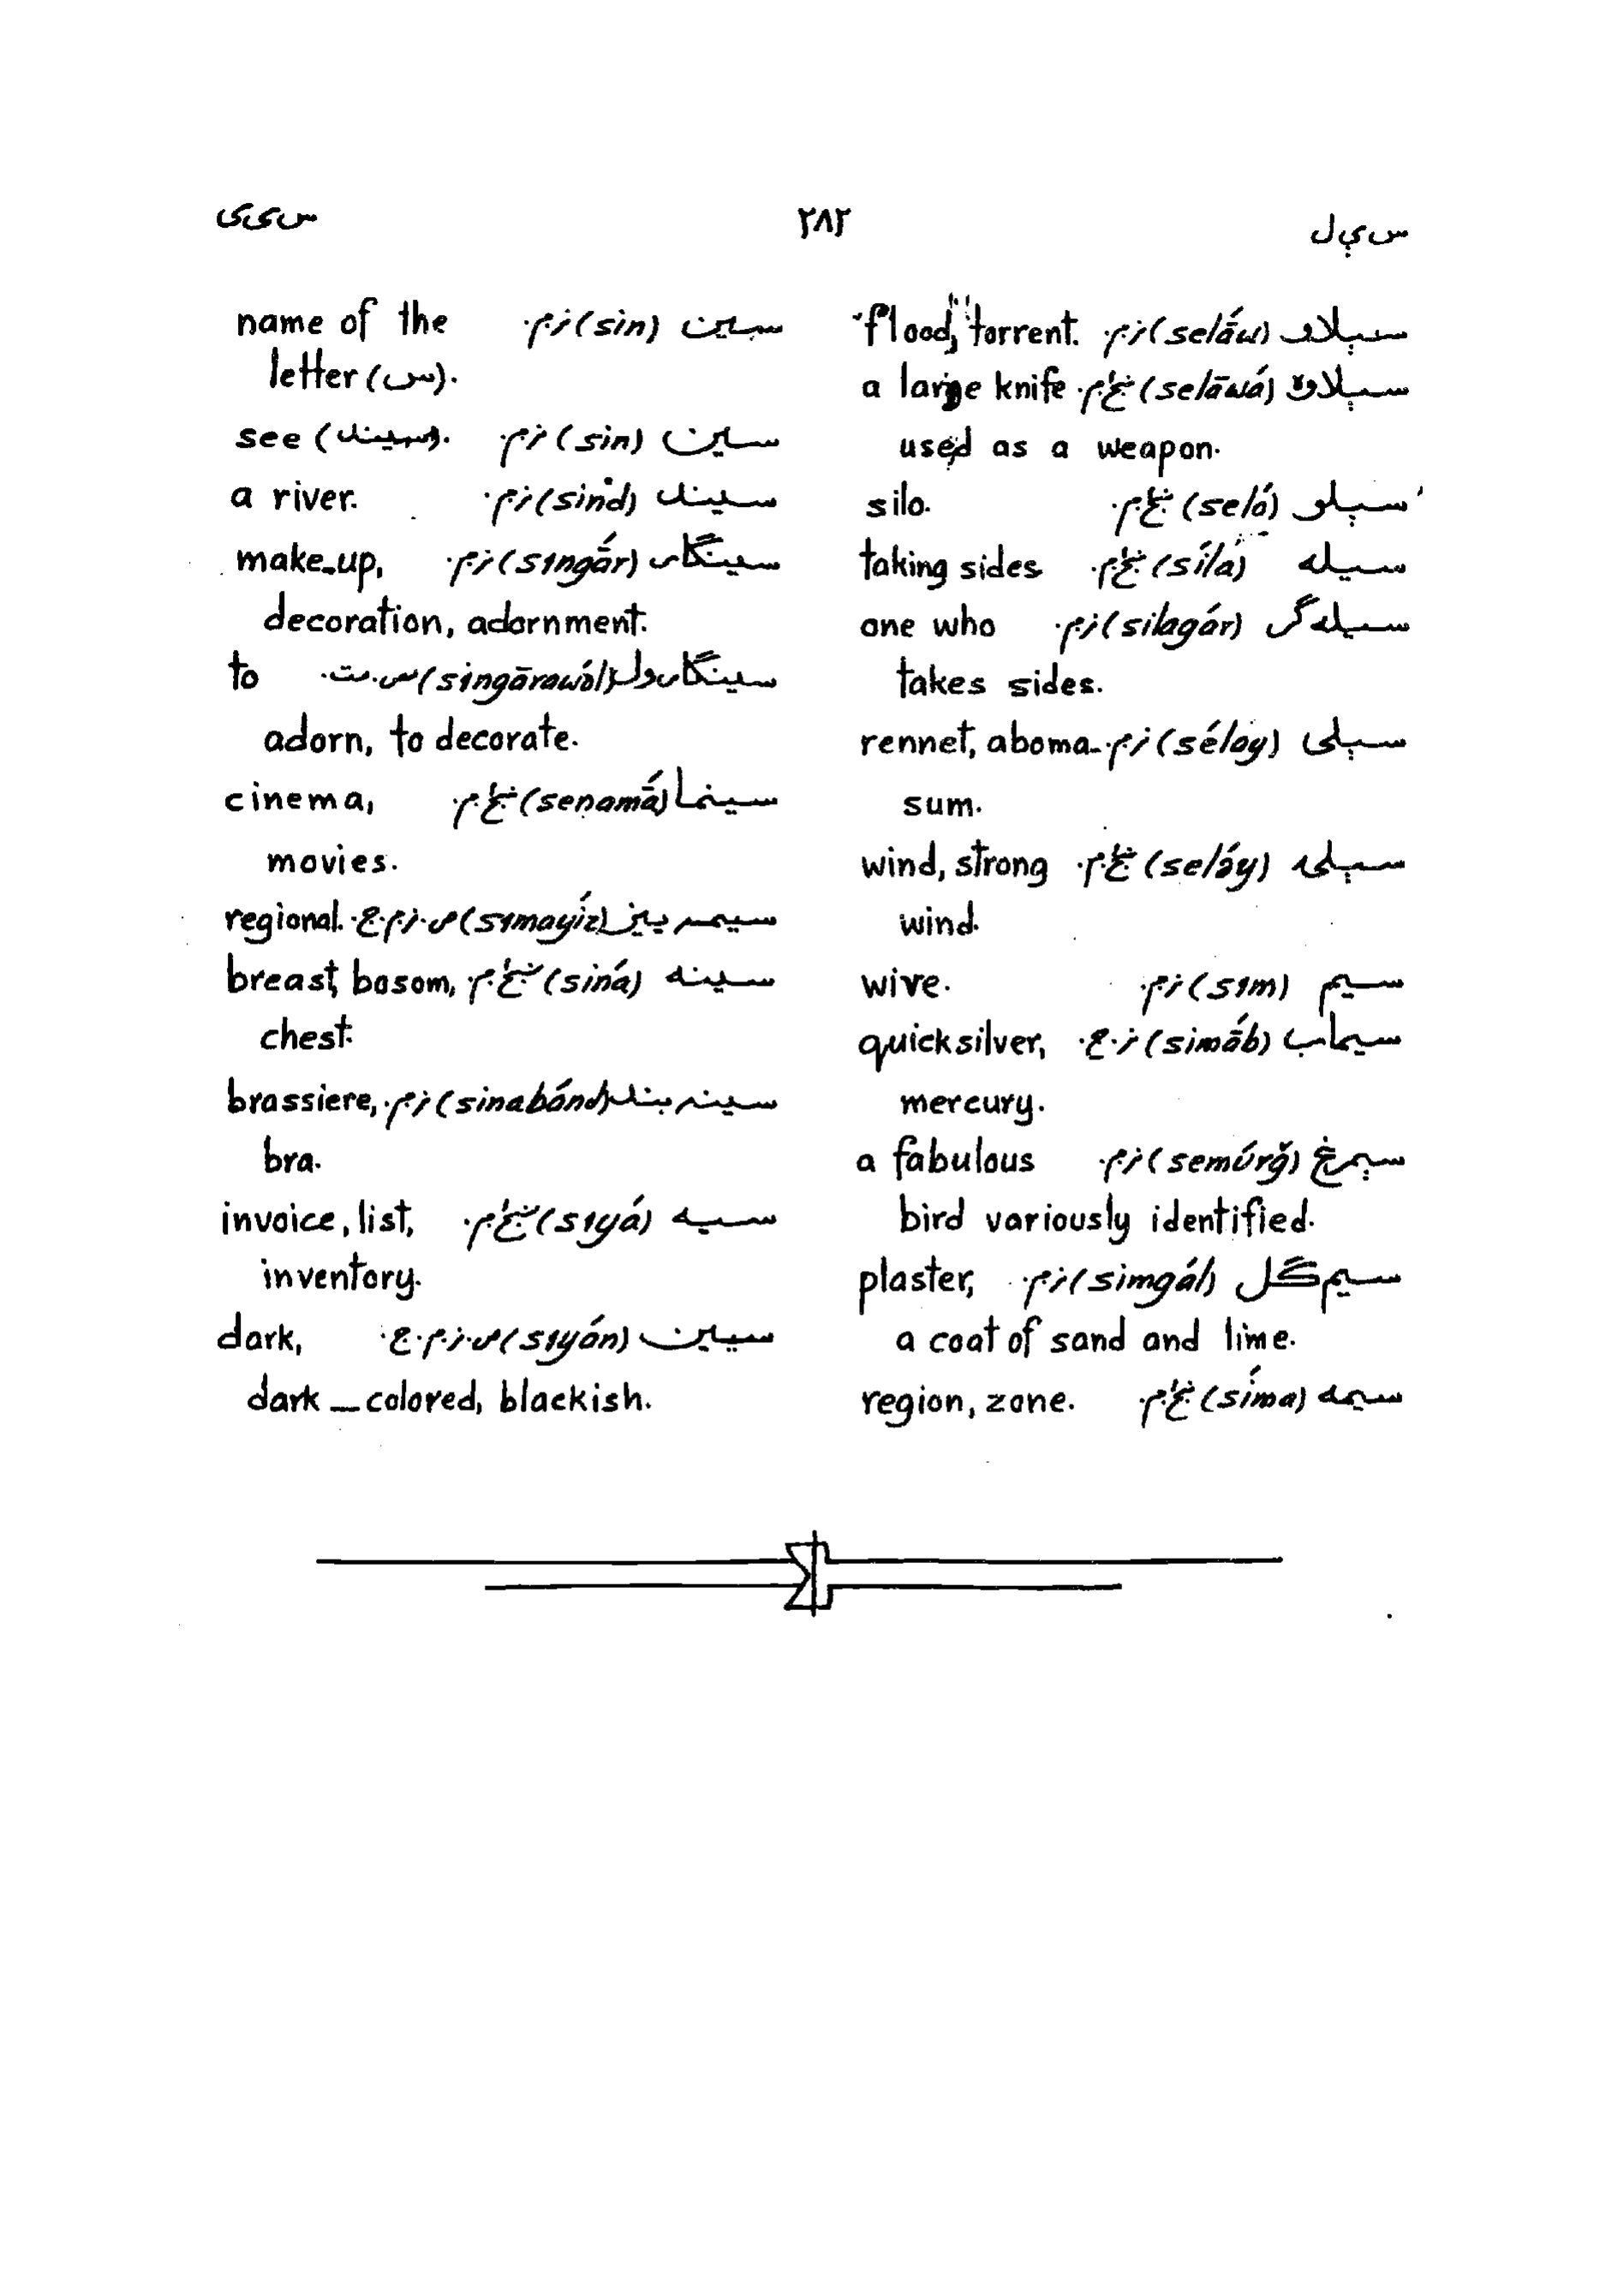 س ې ل ۲۸۲ س ی ی
سېلاو (selā́w) ن.م. flood, torrent.
سېلاوۀ (selāwá) ښځ.م. a large knife
used as a weapon.
سېلو (seló) ښځ.م. silo.
سيله (síla) ښځ.م. taking sides
سيله‌گر (silagár) ن.م. one who
takes sides.
سېلی (séləy) ن.م. rennet, aboma-
sum.
سېلۍ (selə́y) ښځ.م. wind, strong
wind.
سيم (sim) ن.م. wire.
سيماب (simā́b) ن.ج. quicksilver,
mercury.
سېمرغ (semúrğ) ن.م. a fabulous
bird variously identified.
سيم‌ګل (simgál) ن.م. plaster,
a coat of sand and lime.
سيمه (síma) ښځ.م. region, zone.
سين (sin) ن.م. name of the
letter (س).
سين (sin) ن.م. see (سيند).
سيند (sind) ن.م. a river.
سينگار (singā́r) ن.م. make-up,
decoration, adornment.
سينگارول (singārawə́l) س.ت. to
adorn, to decorate.
سينما (senamā́) ښځ.م. cinema,
movies.
سيمه ييز (simayíz) ص.ن.م.ج. regional.
سينه (siná) ښځ.م. breast, bosom,
chest.
سينه بند (sinabánd) ن.م. brassiere,
bra.
سيه (siyá) ښځ.م. invoice, list,
inventory.
سيين (siyə́n) ص.ن.م.ج. dark,
dark-colored, blackish.